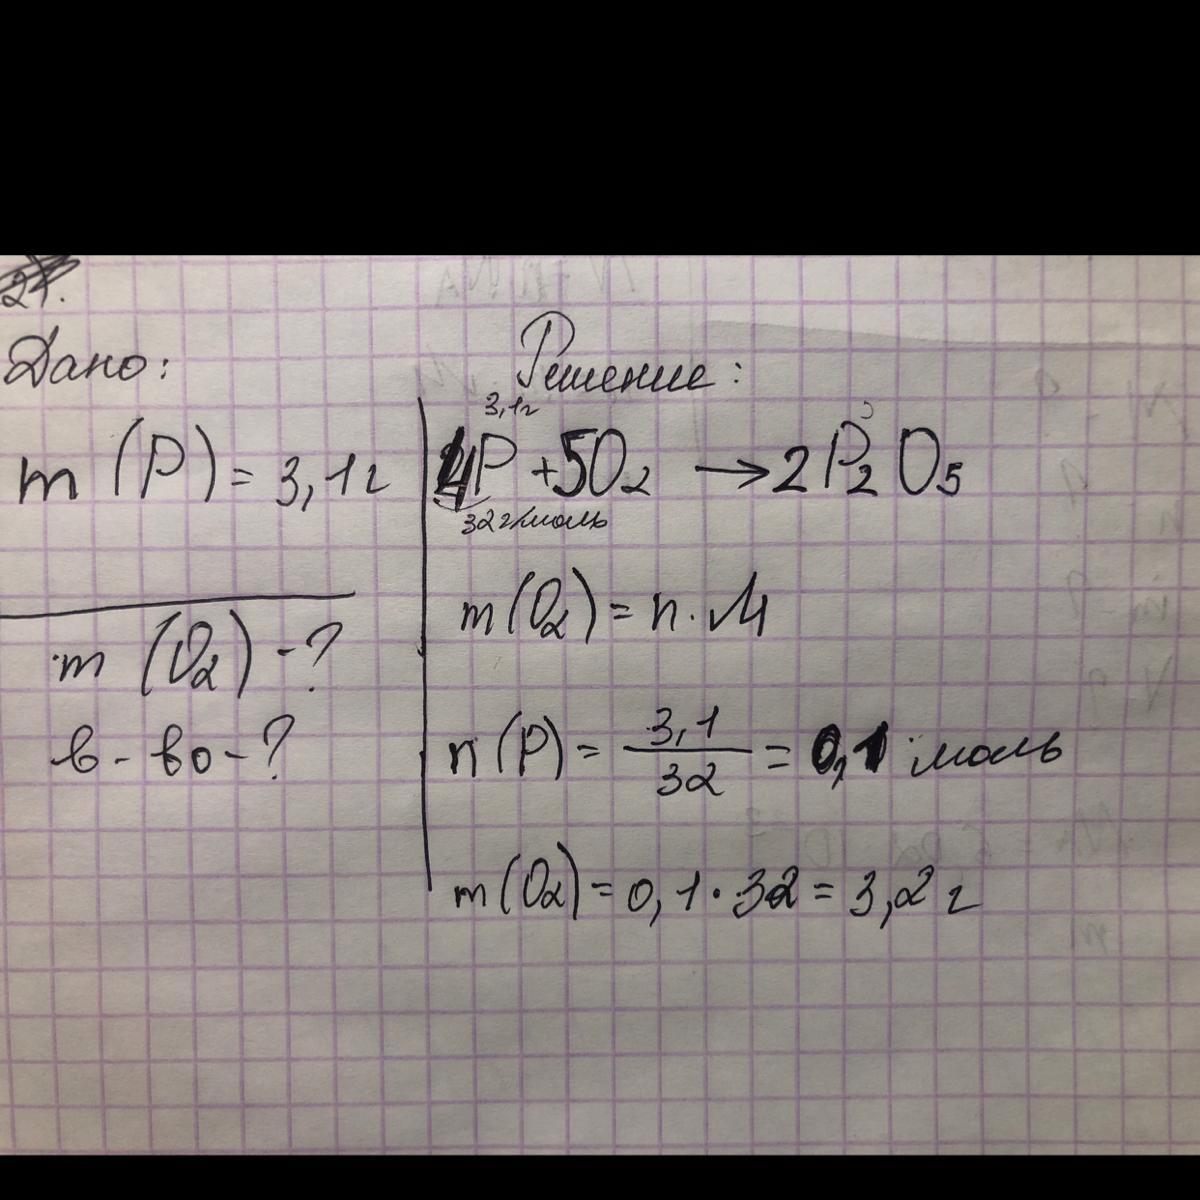 27.
Дано:
m (P) = 3,1г
m (O2) - ?
в-во-?
Решение:
3,1г
4P + 5O2 → 2P2O5
32г/моль
m(O2) = n · M
n(P) = 3,1/32 = 0,1 моль
m(O2) = 0,1 · 32 = 3,2 г